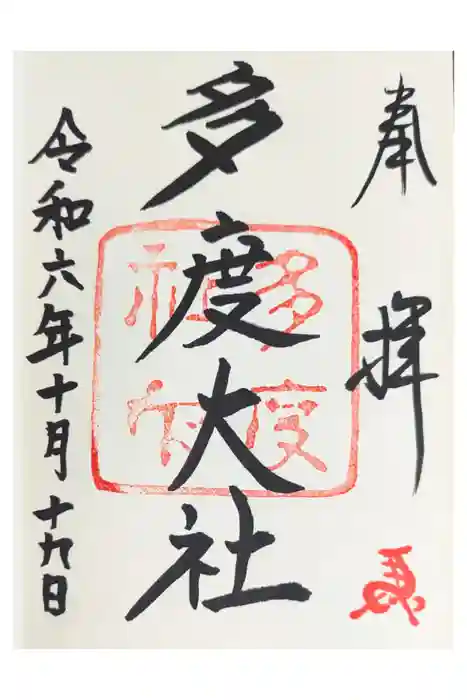 奉拝
多度大社
多度
神社
令和六年十月十九日